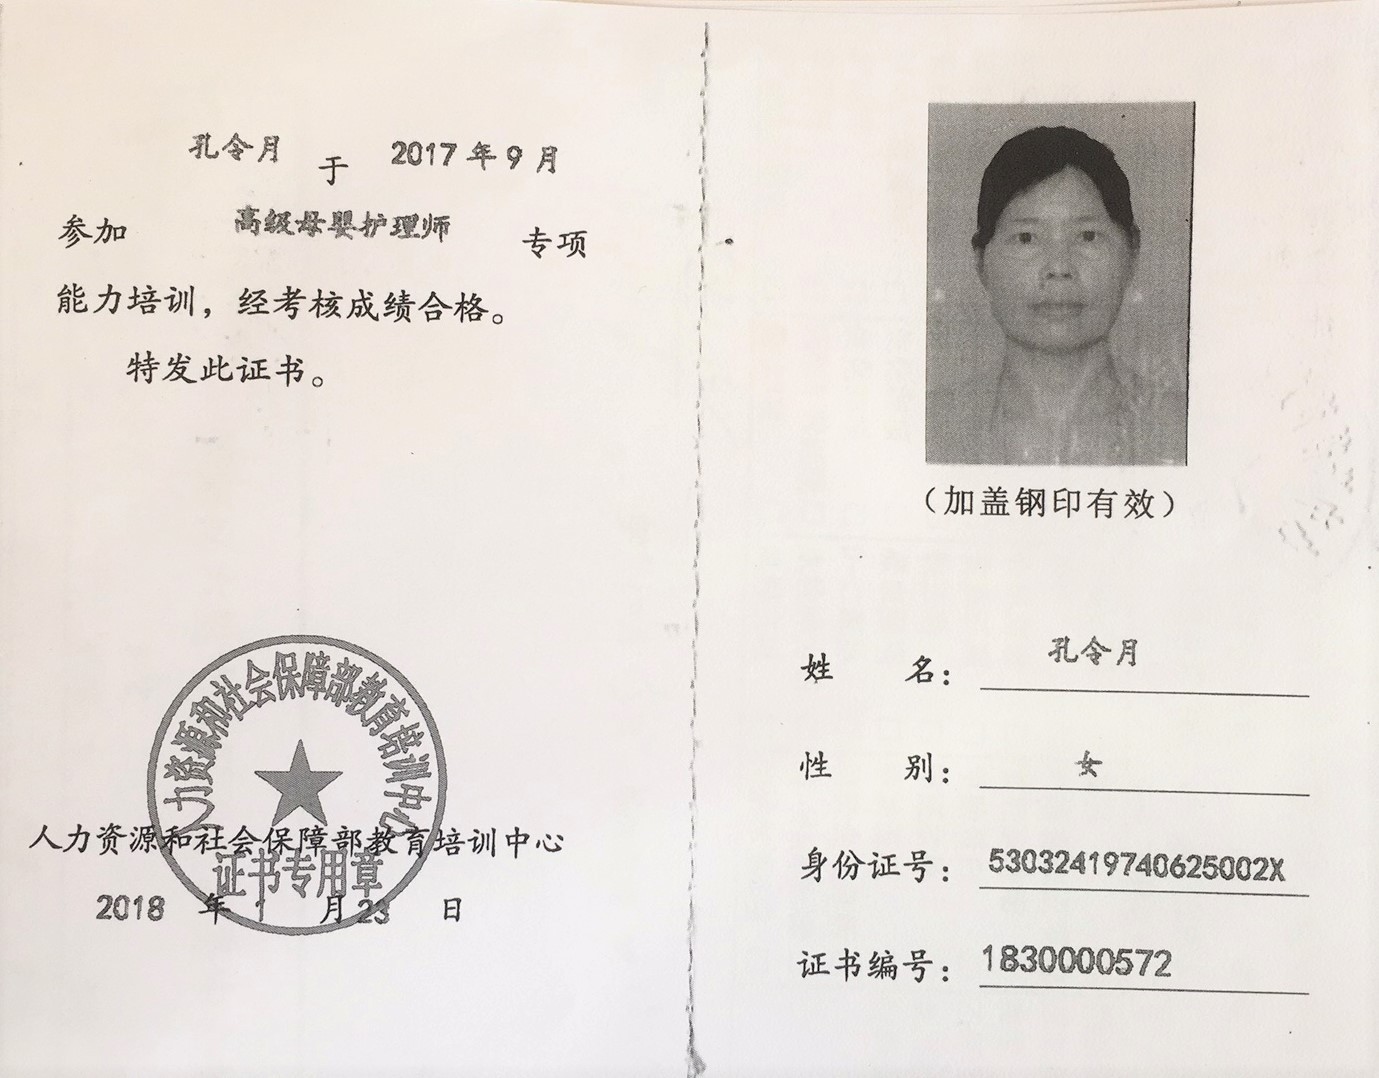 孔令月 于 2017年9月
参加 高级母婴护理师 专项
能力培训，经考核成绩合格。
特发此证书。
人力资源和社会保障部教育培训中心
证书专用章
人力资源和社会保障部教育培训中心
2018 年 1 月 23 日
（加盖钢印有效）
姓 名： 孔令月
性 别： 女
身份证号： 53032419740625002X
证书编号： 1830000572